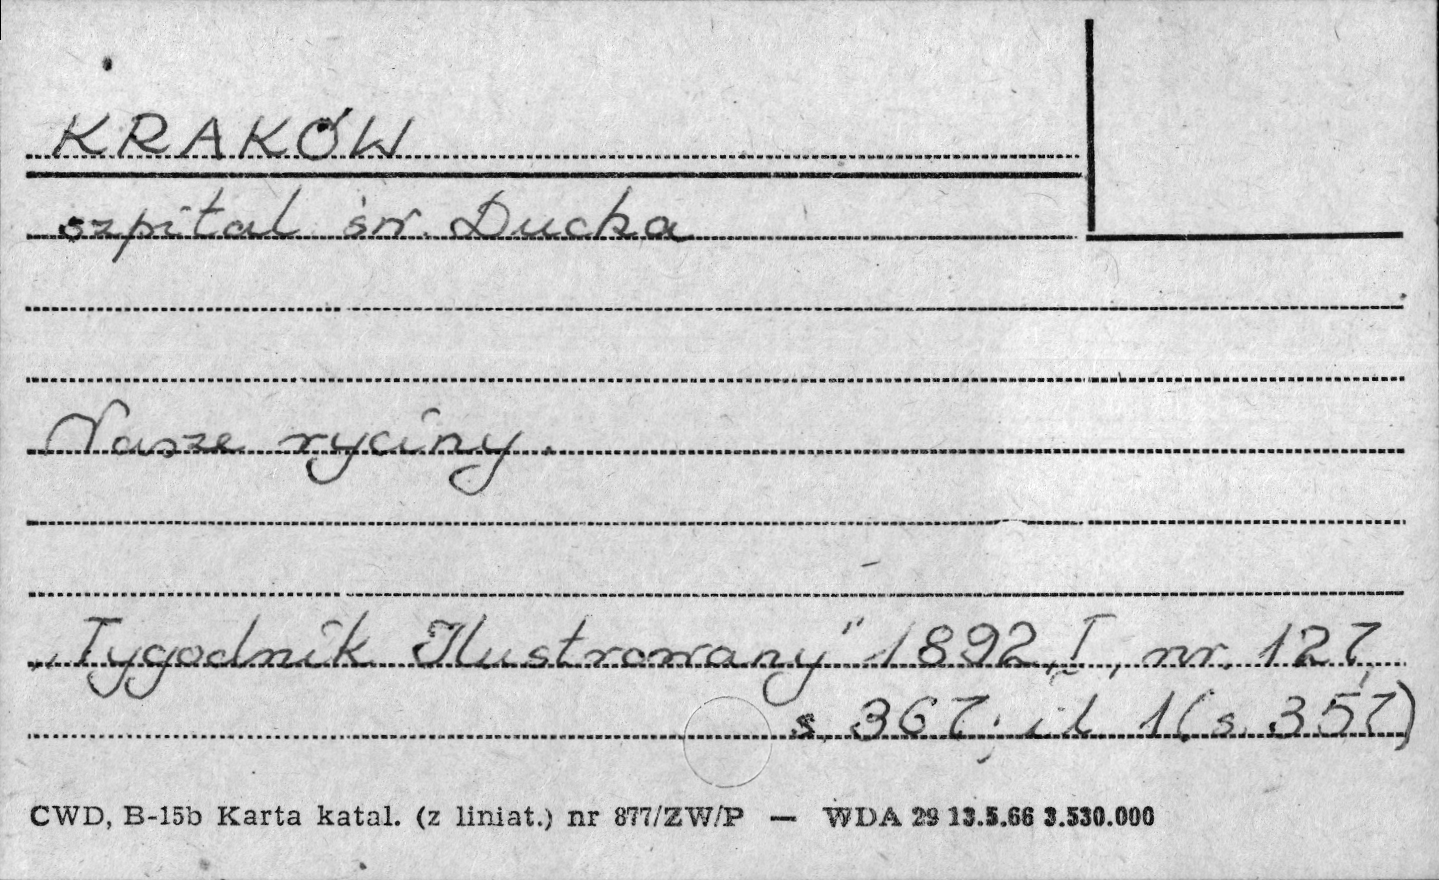 KRAKÓW
szpital św. Ducha
Nasze ryciny.
„Tygodnik Ilustrowany" 1892, I, nr. 127,
s. 367; il. 1 (s. 357)
CWD, B-15b Karta katal. (z liniat.) nr 877/ZW/P — WDA 29 13.5.66 3.530.000